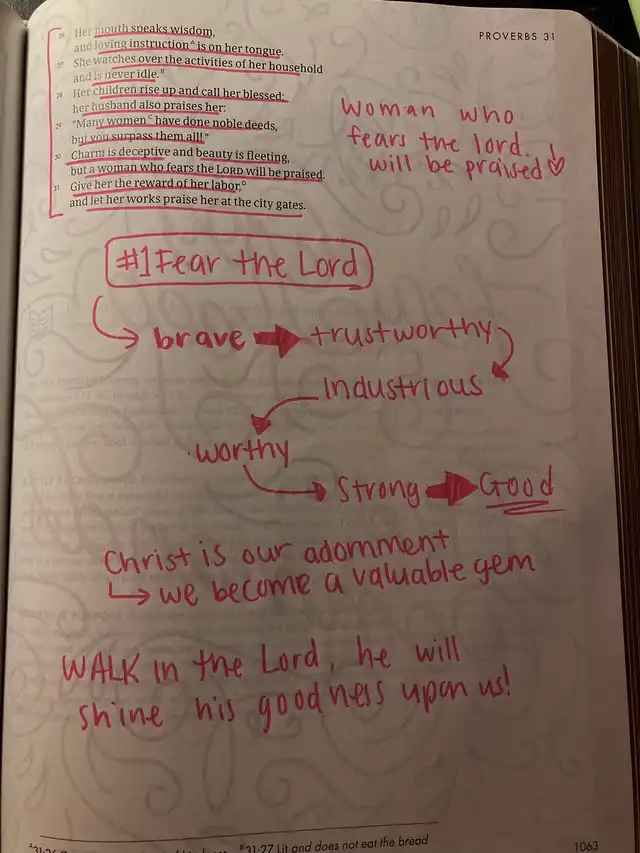 PROVERBS 31
26 Her mouth speaks wisdom,
and loving instruction^A is on her tongue.
27 She watches over the activities of her household
and is never idle.^B
28 Her children rise up and call her blessed;
her husband also praises her:
29 "Many women^C have done noble deeds,
but you surpass them all!"
30 Charm is deceptive and beauty is fleeting,
but a woman who fears the LORD will be praised.
31 Give her the reward of her labor,^D
and let her works praise her at the city gates.
woman who
fears the lord
will be praised! ♡
#1 Fear the Lord
brave → trustworthy
Industrious
worthy
Strong → Good
Christ is our adornment
↳ we become a valuable gem
WALK in the Lord, he will
shine his goodness upon us!
^A31:26 ^B31:27 Lit and does not eat the bread
1063